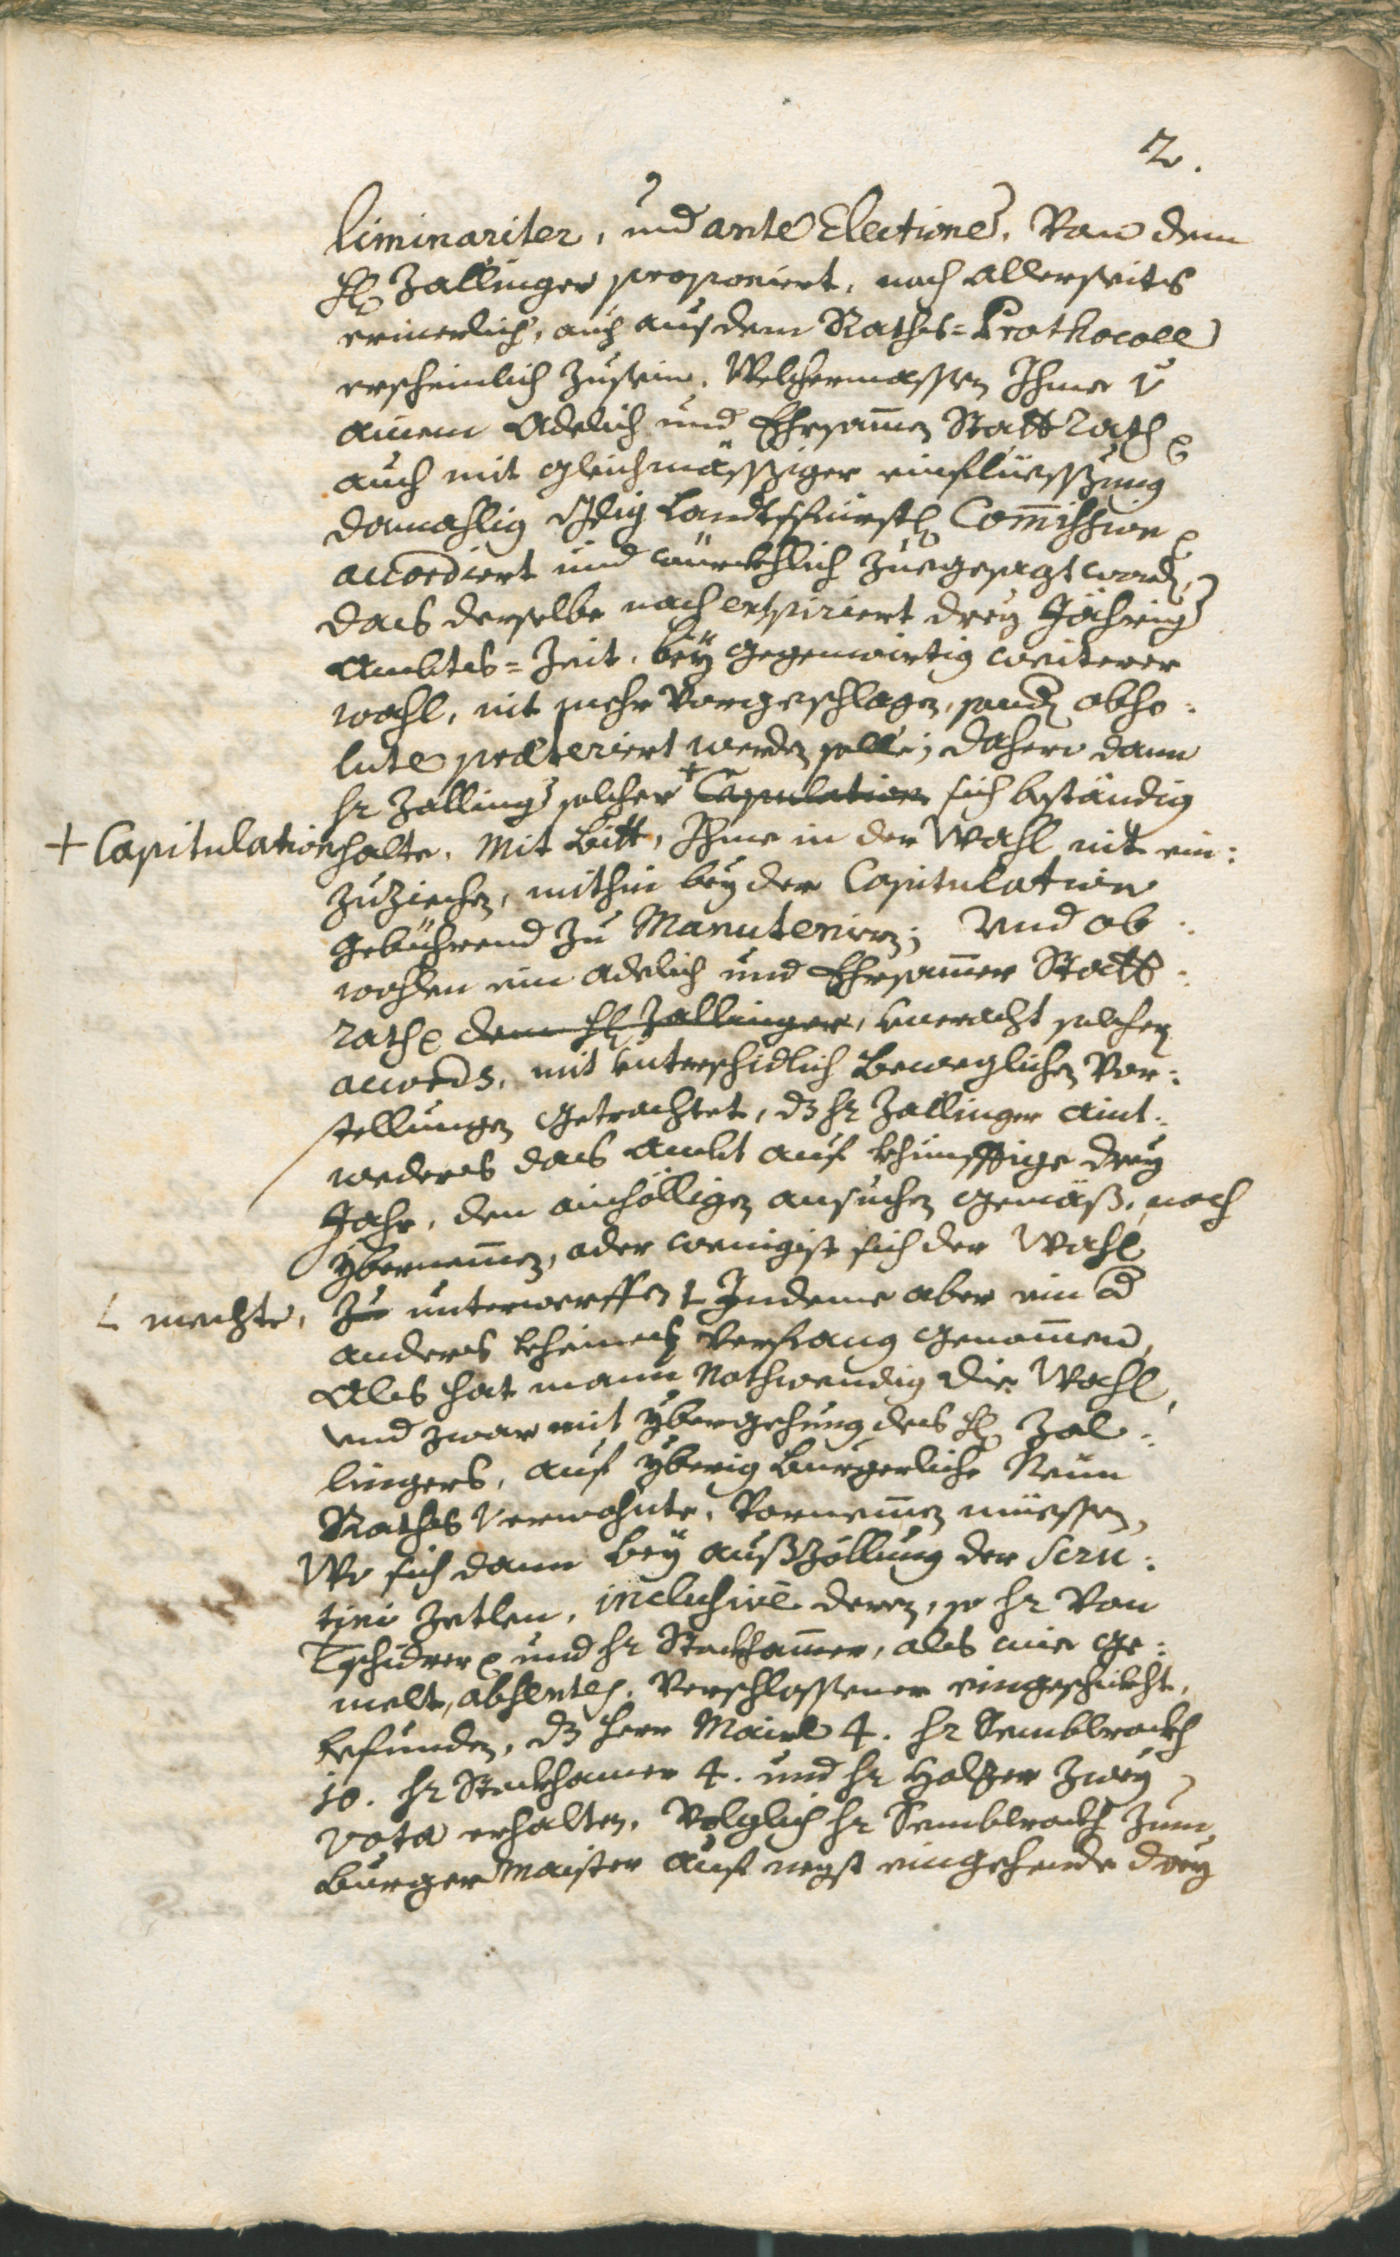 2.
liminariter, und ante Electione, Von dem
H Zallinger proponiert, noch allerseits
erinerlich, auch aus dem Raths=Prothocoll
erscheinlich zusein. Welchermassen Ihme v
ainem Adelich und Ehrsamen Statt rath
auch mit gleichmässiger einflüessung
damahlig Landtsfürstl Commission
accordiert und würckhlich zuegesagt word,
das derselbe nach expiriert drey Jährig
Ambts=Zeit, bey gegenwirtig weiterer
wahl, nit mehr vorgeschlagen, sond abso:
lute præteriert werden solle; dahero dann
hr Zalling solcher + Capulation sich beständig
+ Capitulation halte. Mit bitt, Ihme in der Wahl nit ein:
zuziechen, mithin bey der Capitulation
gebührend zu Manutenirn; Und ob:
wohlen ein adelich und Ehrsamer Statt:
rath dem H Zallinger, Uneracht solchen
accords, mit Unterschidlich beweglichen Vor:
stellungen getrachtet, dz hr Zallinger aint:
weders das Ambt auf khünfftige drey
Jahr, den ainhölligen ansuchen gemäß, noch
ybernemen, oder wenigist sich der Wahl
L mechte, zu unterwerffen L Indeme aber ein od
anders kheinen Verfang genomen,
Als hat mann Nothwendig die Wahl,
und zwar mit ybergehung des H Zal:
lingers, auf yberig burgerliche Neun
Raths Verwohnte, Vornemen müessen,
Wo sich dann bey außzöllung der Scru:
tini Zetlen, inclusivè deren, so hr Von
Tschiderer und hr Stockhamer, als wie ge:
melt, absentes, Verschlossener eingeschickht,
befunden, dz herr Mairl 4. hr Semblrockh
10. hr Stockhamer 4. und hr Holzer zwey
vota erhalten. Volglich hr Semblrockh zum
Burger Maister auf negst eingehende drey